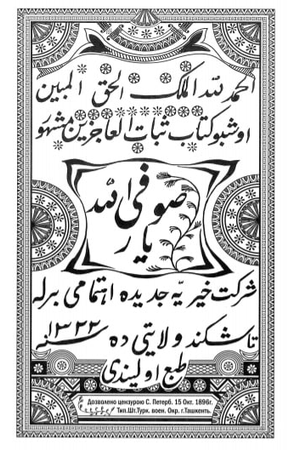 الحمد لله الملك الحق المبين
اوشبو كتاب ثبات العاجزين مشهور
صوفى الله
يار
شركت خيريه جديده اهتمامى برله
تاشكند ولايتى ده سنه ١٣٢٢
طبع اولیندی
Дозволено цензурою С. Петерб. 15 Окт. 1896г.
Тип.Шт.Турк. воен. Окр. г.Ташкентъ.